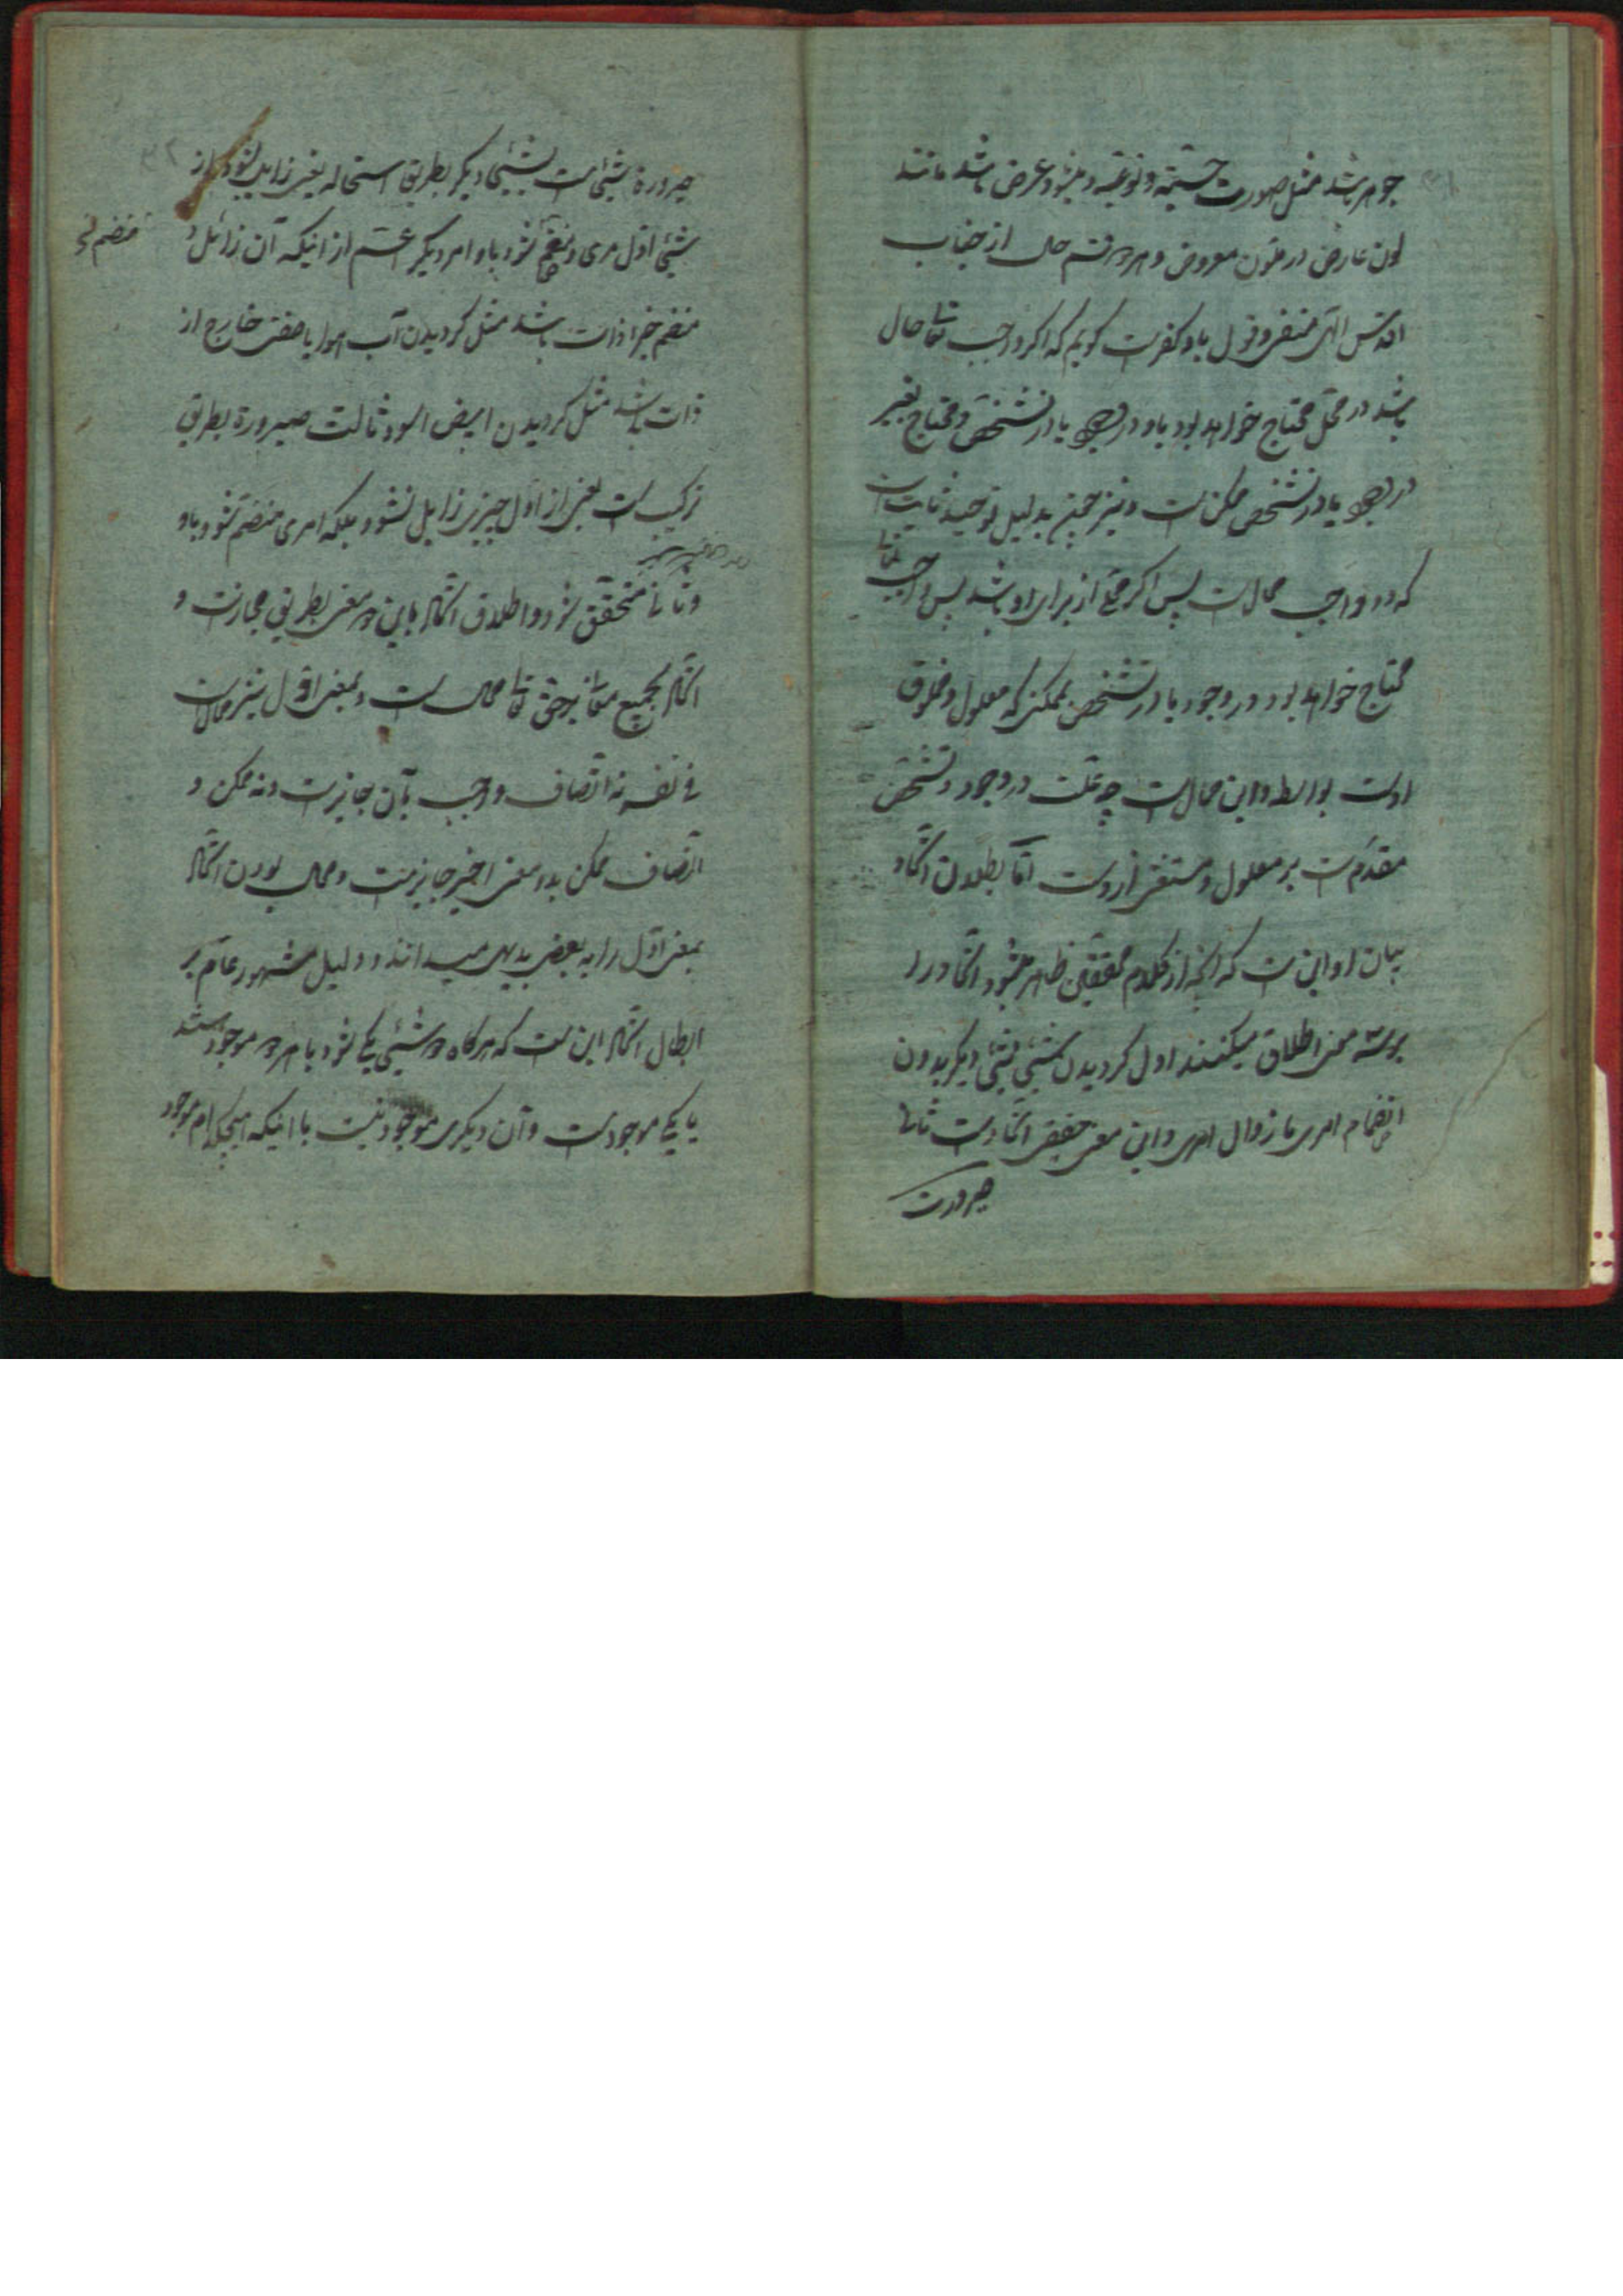 جوهر باشد مثل صورت جسمیّه و نوعیّه و میشود عرض باشد مانند
لون عارض در متلون معروض و هر دو قسم حال از جناب
اقدس الهی منتفی و قول باو کفرست گویم که اگر واجب تعالی حال
باشد در محل محتاج خواهد بود باو در وجود یا در تشخّص و محتاج بغیر
در وجود یا در تشخص ممکن است و نیز چنین بدلیل توحید ثابت است
که دو واجب محال است پس اگر محلی از برای او باشد پس واجب تعالی
محتاج خواهد بود در وجود یا در تشخص بممکنی که معلول و مخلوق
اوست بواسطه و این محال است چه علّت در وجود و تشخّص
مقدّم است بر معلول و مستغنی از اوست امّا بطلان اتّحاد
بیان او این است که آنچه از کلام محققین ظاهر میشود اتّحاد را
بر سه معنی اطلاق میکنند اول گردیدن شیئی بشیئی دیگر بدون
انضمام امری یا زوال امری و این معنی حقیقی اتّحاد است ثانیا
صیرورت
۳۲
صیرورة شیئی است بشیئی دیگر بطریق استحاله یعنی زایل شود از
شیئی اوّل امری و منضم شود باو امر دیگر اعمّ از اینکه آن زائل و
منضم
منضم جزا ذات باشد مثل گردیدن آب هوا یا صفتی خارج از
ذات باشد مثل گردیدن ابیض اسود ثالث صیرورة بطریق
ترکیب است یعنی از اوّل چیزی زایل نشود بلکه امری منضم شود باو
و ثالثی متحقّق شود و اطلاق اتّحاد باین دو معنی بطریق مجازست و
اتّحاد بجمیع معانی بر حق تعالی محال است و بمعنی اوّل نیز محال است
فی نفسه نه اتّصاف واجب بآن جایز است و نه ممکن و
اتّصاف ممکن بدو معنی اخیر جایز است و محال بودن اتّحاد
بمعنی اوّل را به بعضی بدیهی میدانند و دلیل مشهور عام بر
ابطال اتّحاد این است که هرگاه دو شیئی یکی شود یا هر دو موجودند
یا یکی موجود است و آن دیگری موجود نیست یا اینکه هیچکدام موجود